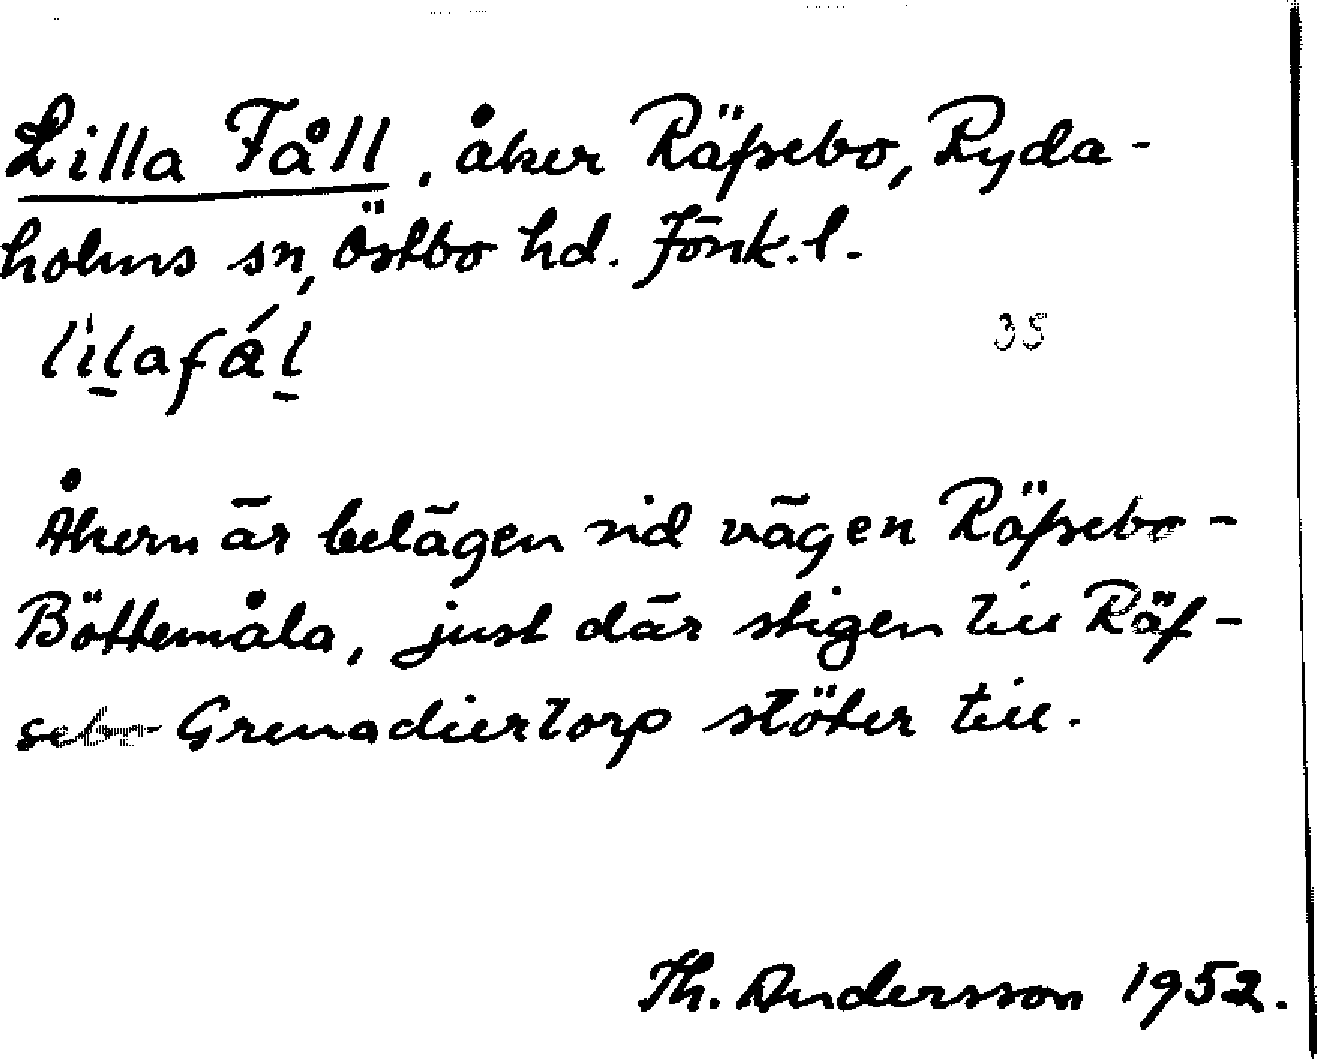 Lilla Fåll, åker Räfsebo, Ryda-
holms sn, Östbo hd. Jönk.l.
lilafál
35
Åkern är belägen vid vägen Räfsebo-
Böttemåla, just där stigen till Räf-
sebo Grenadiertorp stöter till.
Th. Andersson 1952.